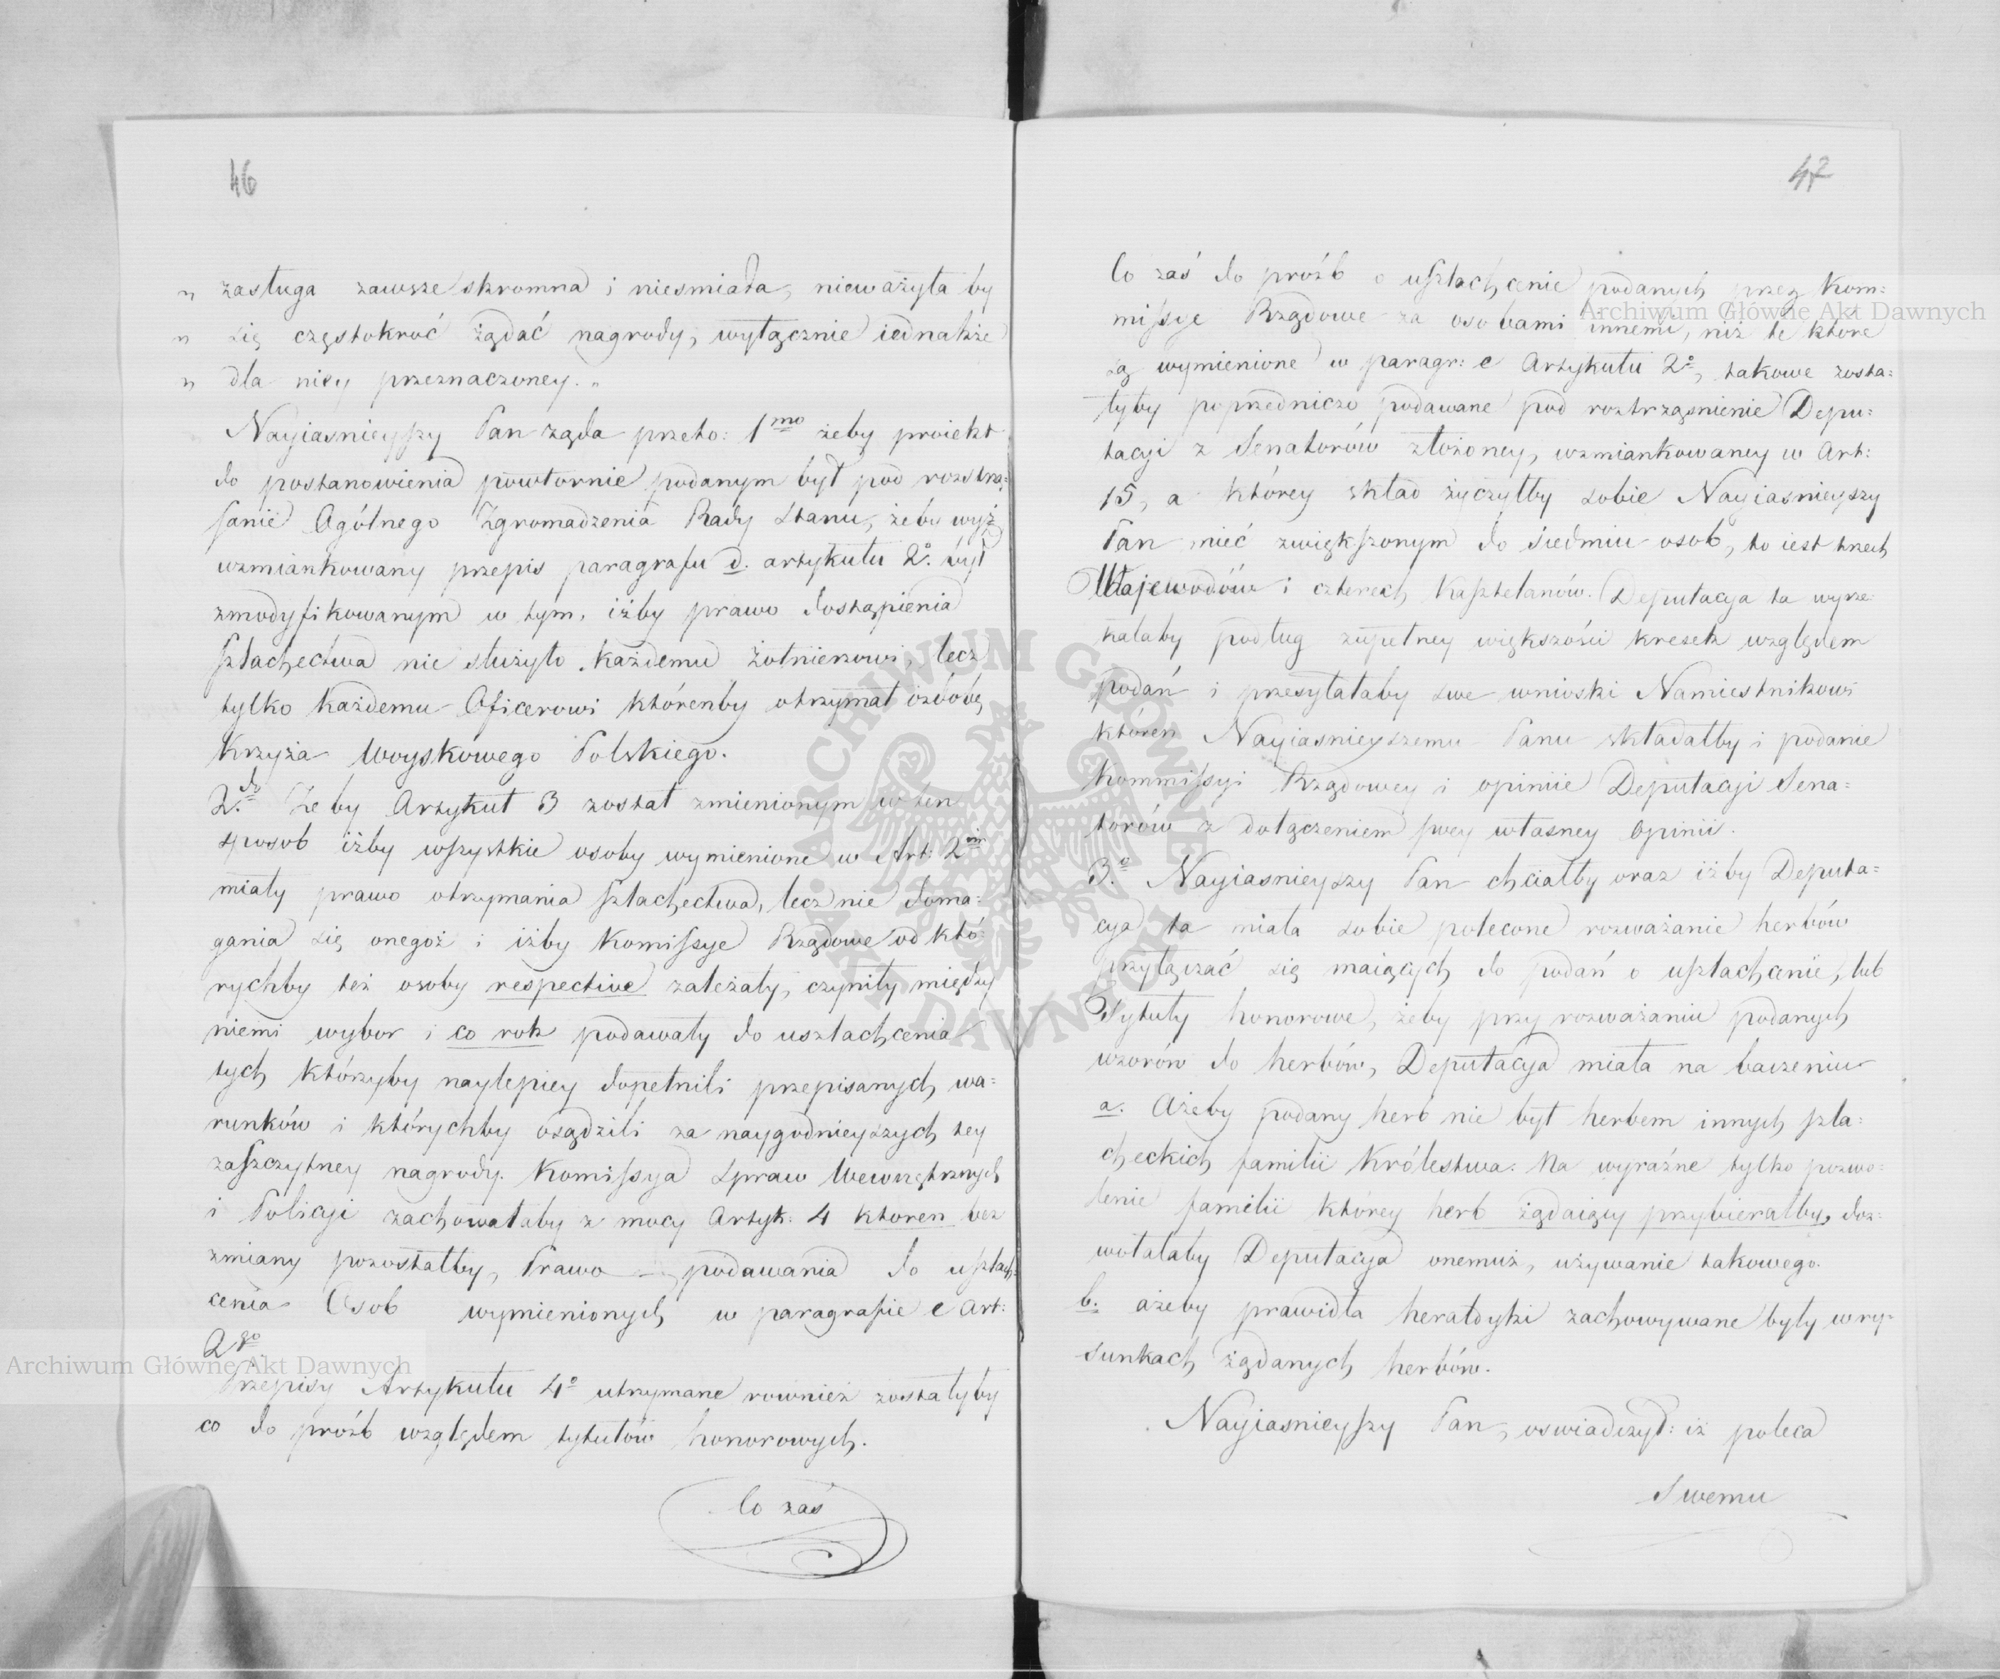 46
„ zasługa zawsze skromna i nieśmiała, nieważyła by
„ się częstokroć żądać nagrody, wyłącznie iednakże
„ dla niey przeznaczoney. „
Nayiaśnieyszy Pan żąda przeto: 1mo żeby proiekt
do postanowienia powtornie podanym był pod roztrzą=
sanie Ogólnego Zgromadzenia Rady Stanu, żeby wyż
wzmiankowany przepis paragrafu d. artykułu 2o. był
zmodyfikowanym w tym, iżby prawo dostąpienia
szlachectwa nie służyło każdemu żołnierzowi, lecz
tylko każdemu Oficerowi którenby otrzymał ozdobę
Krzyża Woyskowego Polskiego.
2do Żeby Artykuł 3 został zmienionym w ten
sposob iżby wszystkie osoby wymienione w Art: 2im
miały prawo otrzymania szlachectwa, lecz nie doma=
gania się onegoż i iżby Komissye Rządowe od któ=
rychby też osoby respective zależały, czyniły między
niemi wybor i co rok podawały do uszlachcenia
tych którzyby naylepiey dopełnili przepisanych wa=
runków i którychby osądzili za naygodnieyszych tey
zaszczytney nagrody. Komissya Spraw Wewnętrznych
i Policyi zachowałaby z mocy Artyk: 4 ktoren bez
zmiany pozostałby, Prawo podawania do uszlach=
cenia Osob wymienionych w paragrafie e Art:
2go
Przepisy Artykułu 4o utrzymane rownież zostałyby
co do próźb względem tytułów honorowych.
Co zaś
47
Co zaś do próźb o uszlachcenie podanych przez Kom=
missye Rządowe za osobami innemi, niż te które
są wymienione w paragr: e Artykułu 2o, takowe zosta=
łyby poprzedniczo podawane pod roztrząśnienie Depu=
tacyi z Senatorów złożoney, wzmiankowaney w Art:
15, a którey skład życzyłby sobie Nayiaśnieyszy
Pan mieć zwiększonym do siedmiu osob, to iest trzech
Wojewodów i czterech Kasztelanów. Deputacya ta wyrze=
kałaby podług zupełney większości kresek względem
podań i przesyłałaby swe wnioski Namiestnikowi
któren Nayiaśnieyszemu Panu składałby i podanie
Kommissyi Rządowey i opinie Deputacyi Sena=
torów z dołączeniem swey własney Opinii.
3o. Nayiaśnieyszy Pan chciałby oraz iżby Deputa=
cya ta miała sobie polecone rozważanie herbów
przyłączać się maiących do podań o uszlachcenie, lub
Tytuły honorowe, żeby przy rozważaniu podanych
wzorów do herbów, Deputacya miała na baczeniu
a. Ażeby podany herb nie był herbem innych szla=
checkich familii Królestwa. Na wyraźne tylko pozwo=
lenie familii którey herb żądaiący przybierałby, doz=
wołałaby Deputacya onemuż, używanie takowego.
b. ażeby prawidła heraldyki zachowywane były w ry=
sunkach żądanych herbów.
Nayiaśnieyszy Pan, oświadczył: iż poleca
Swemu
Archiwum Główne Akt Dawnych
Archiwum Główne Akt Dawnych
ARCHIWUM GŁÓWNE AKT DAWNYCH